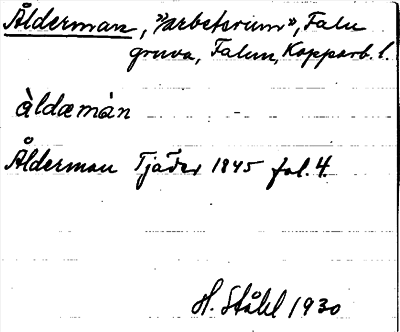 Ålderman, "arbetsrum", Falu
gruva, Falun, Kopparb. l.
àldæmàn
Ålderman Tjäder 1845 fol. 4.
H. Ståhl 1930